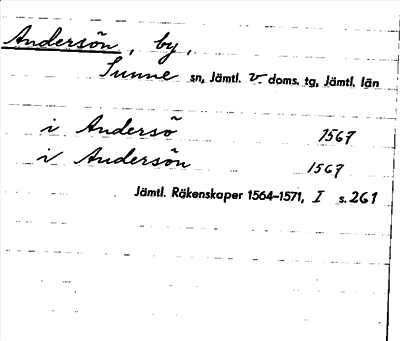 Andersön, by,
Sunne sn, Jämtl. v. doms. tg, Jämtl. län
i Andersõ 1567
i Andersõn 1567
Jämtl. Räkenskaper 1564–1571, I s. 261